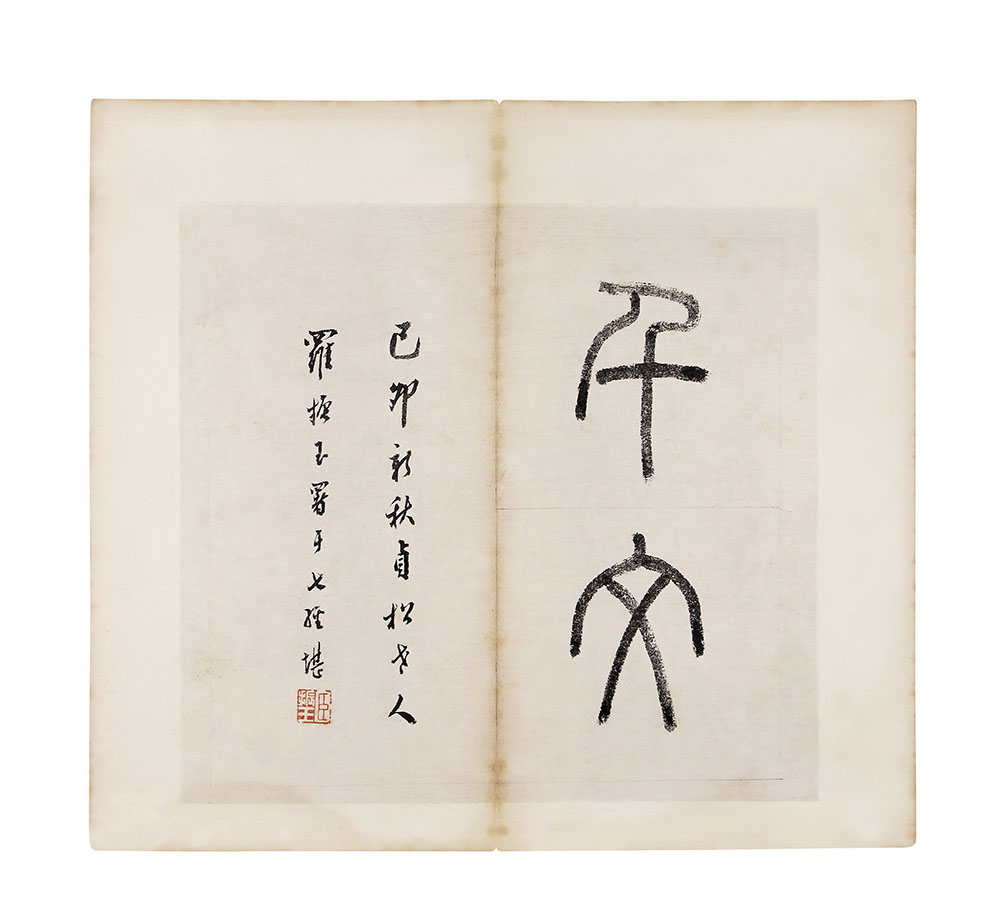 千
文
己卯新秋貞松老人
羅振玉署于七經堪
臣振玉